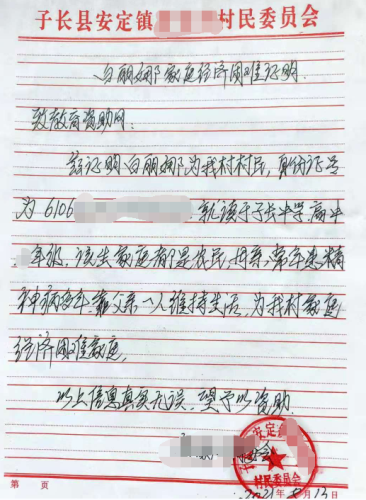 子长县安定镇 村民委员会
白丽娜家庭经济困难证明
致教育资助网:
兹证明白丽娜为我村村民,身份证号
为6106 就读于子长中学高中
年级,该生家庭都是农民,母亲常年患精
神病多年,靠父亲一人维持生活,为我村家庭
经济困难家庭,
以上信息真实无误,望予以资助.
子长县安定镇
村民委员会
2021 8 13日
第 页